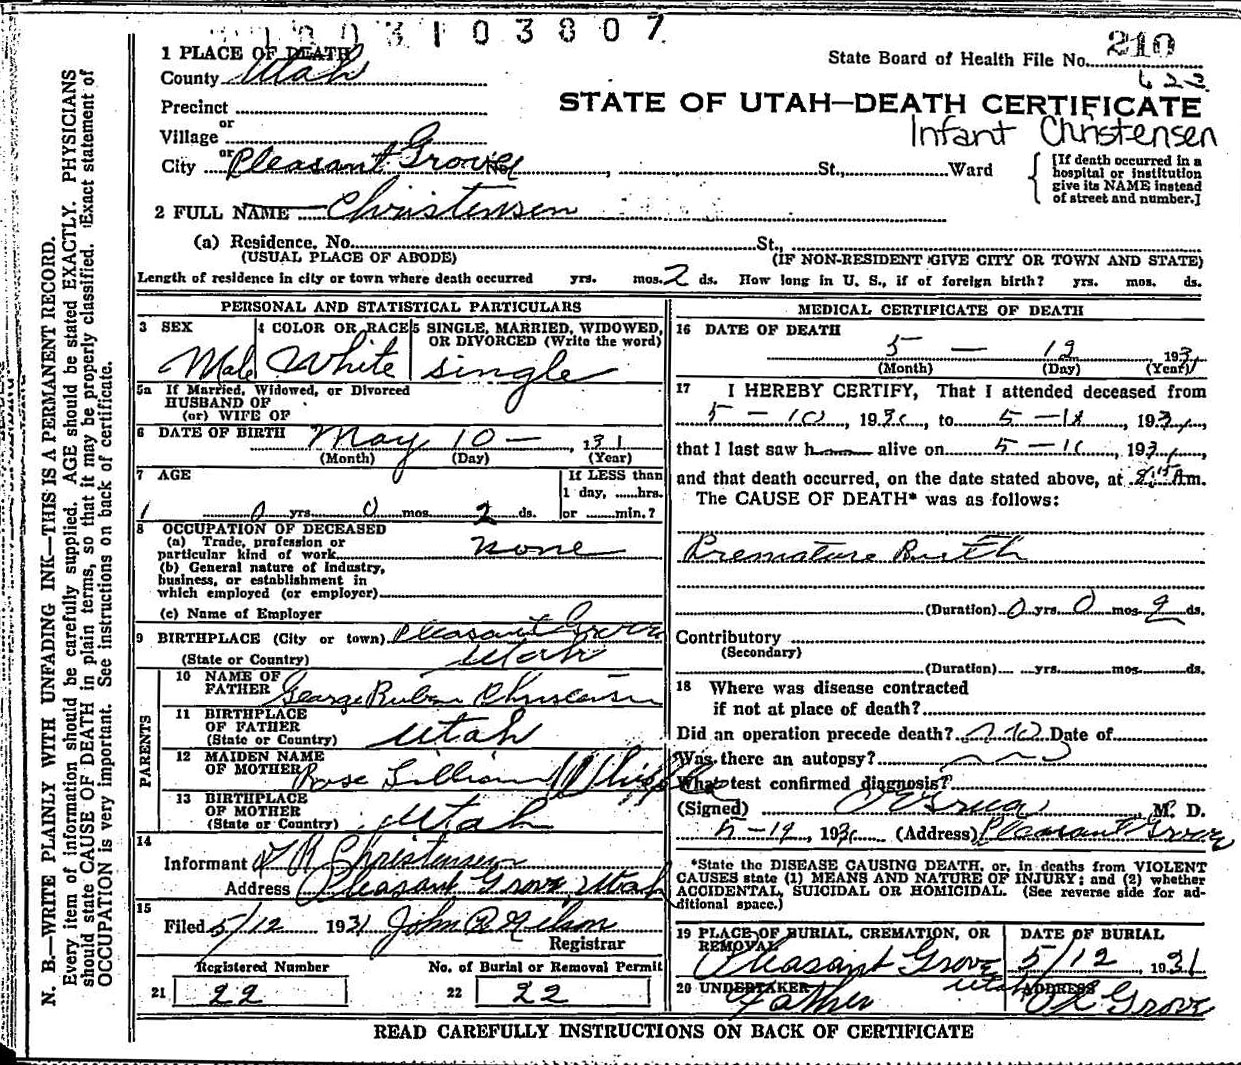 1003103807
1 PLACE OF DEATH
County Utah
State Board of Health File No. 210
622
Precinct
or
Village
or
City Pleasant Grove No. St., Ward
STATE OF UTAH—DEATH CERTIFICATE
Infant Christensen
[If death occurred in a
hospital or institution
give its NAME instead
of street and number.]
2 FULL NAME Christensen
(a) Residence, No. St.,
(USUAL PLACE OF ABODE) (IF NON-RESIDENT GIVE CITY OR TOWN AND STATE)
Length of residence in city or town where death occurred yrs. mos. 2 ds. How long in U. S., if of foreign birth? yrs. mos. ds.
PERSONAL AND STATISTICAL PARTICULARS
3 SEX
Male
4 COLOR OR RACE
White
5 SINGLE, MARRIED, WIDOWED,
OR DIVORCED (Write the word)
single
5a If Married, Widowed, or Divorced
HUSBAND OF
(or) WIFE OF
6 DATE OF BIRTH May 10 — , 131
(Month) (Day) (Year)
7 AGE
0 yrs. 0 mos. 2 ds.
If LESS than
1 day, ......hrs.
or ......min.?
8 OCCUPATION OF DECEASED
(a) Trade, profession or
particular kind of work none
(b) General nature of Industry,
business, or establishment in
which employed (or employer)
(c) Name of Employer
9 BIRTHPLACE (City or town) Pleasant Grove
(State or Country) Utah
PARENTS
10 NAME OF
FATHER George Ruben Christensen
11 BIRTHPLACE
OF FATHER
(State or Country) Utah
12 MAIDEN NAME
OF MOTHER Rose Lillian
13 BIRTHPLACE
OF MOTHER
(State or Country) Utah
14
Informant R Christensen
Address Pleasant Grove Utah
15
Filed 5/12 1931 John R Nelson
Registrar
Registered Number No. of Burial or Removal Permit
21 22 22 22
MEDICAL CERTIFICATE OF DEATH
16 DATE OF DEATH
5 — 12 , 1931
(Month) (Day) (Year)
17 I HEREBY CERTIFY, That I attended deceased from
5 — 10, 193 , to 5 — , 193 ,
that I last saw h alive on 5 — , 193 ,
and that death occurred, on the date stated above, at Am.
The CAUSE OF DEATH* was as follows:
Premature Birth
(Duration) 0 yrs. 0 mos. 2 ds.
Contributory
(Secondary)
(Duration) yrs. mos. ds.
18 Where was disease contracted
if not at place of death?
Did an operation precede death? no Date of
Was there an autopsy? no
What test confirmed diagnosis?
(Signed) M. D.
5-12, 193 (Address) Pleasant Grove
*State the DISEASE CAUSING DEATH, or, in deaths from VIOLENT
CAUSES state (1) MEANS AND NATURE OF INJURY; and (2) whether
ACCIDENTAL, SUICIDAL OR HOMICIDAL. (See reverse side for ad-
ditional space.)
19 PLACE OF BURIAL, CREMATION, OR
REMOVAL
Pleasant Grove
Utah
DATE OF BURIAL
5/12 , 1931
20 UNDERTAKER
Father
ADDRESS
Grove
READ CAREFULLY INSTRUCTIONS ON BACK OF CERTIFICATE
N. B.—WRITE PLAINLY WITH UNFADING INK—THIS IS A PERMANENT RECORD.
Every item of information should be carefully supplied. AGE should be stated EXACTLY. PHYSICIANS
should state CAUSE OF DEATH in plain terms, so that it may be properly classified. Exact statement of
OCCUPATION is very important. See instructions on back of certificate.